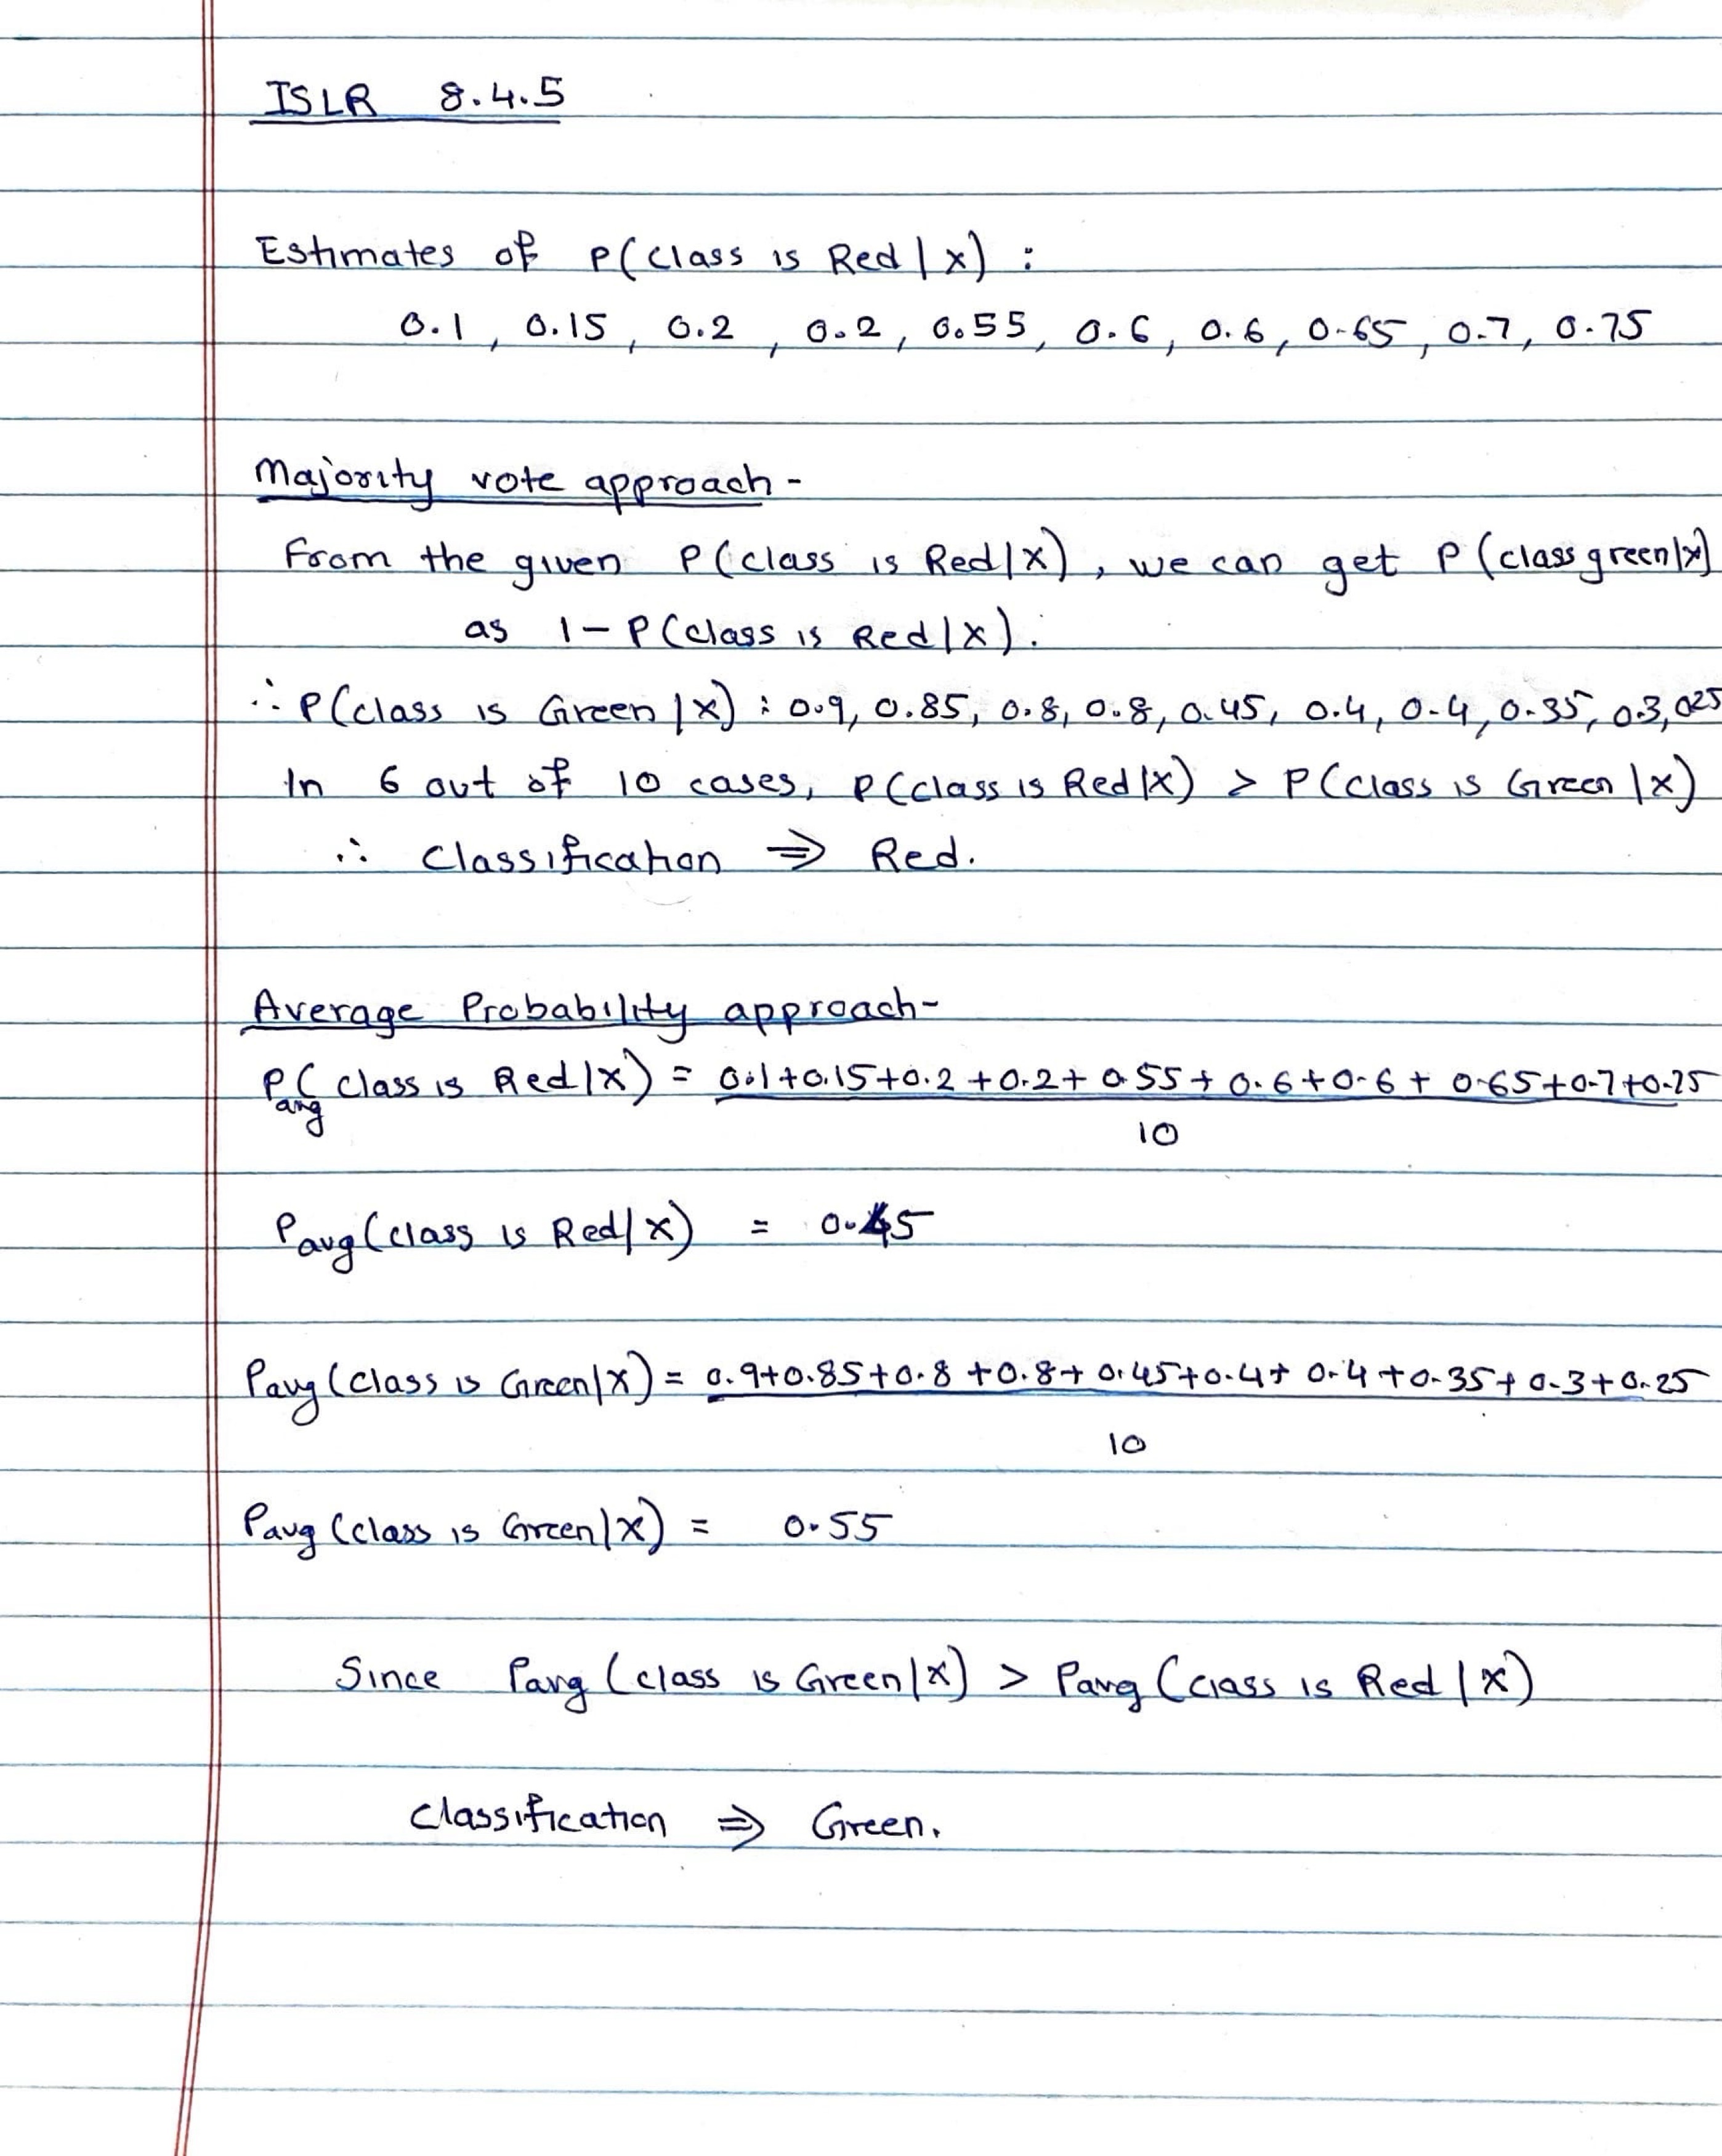 ISLR 8.4.5
Estimates of P(class is Red | x) :
0.1, 0.15, 0.2, 0.2, 0.55, 0.6, 0.6, 0.65, 0.7, 0.75
Majority vote approach -
From the given P(class is Red|X), we can get P(class green|X)
as 1 - P(class is Red|X).
∴ P(class is Green|X) : 0.9, 0.85, 0.8, 0.8, 0.45, 0.4, 0.4, 0.35, 0.3, 025
In 6 out of 10 cases, P(class is Red|X) > P(class is Green|X)
∴ Classification ⇒ Red.
Average Probability approach-
Pavg(class is Red|X) = 0.1+0.15+0.2+0.2+0.55+0.6+0.6+0.65+0.7+0.75
10
Pavg(class is Red|X) = 0.45
Pavg(class is Green|X) = 0.9+0.85+0.8+0.8+0.45+0.4+0.4+0.35+0.3+0.25
10
Pavg(class is Green|X) = 0.55
Since Pavg(class is Green|X) > Pavg(class is Red|X)
Classification ⇒ Green.